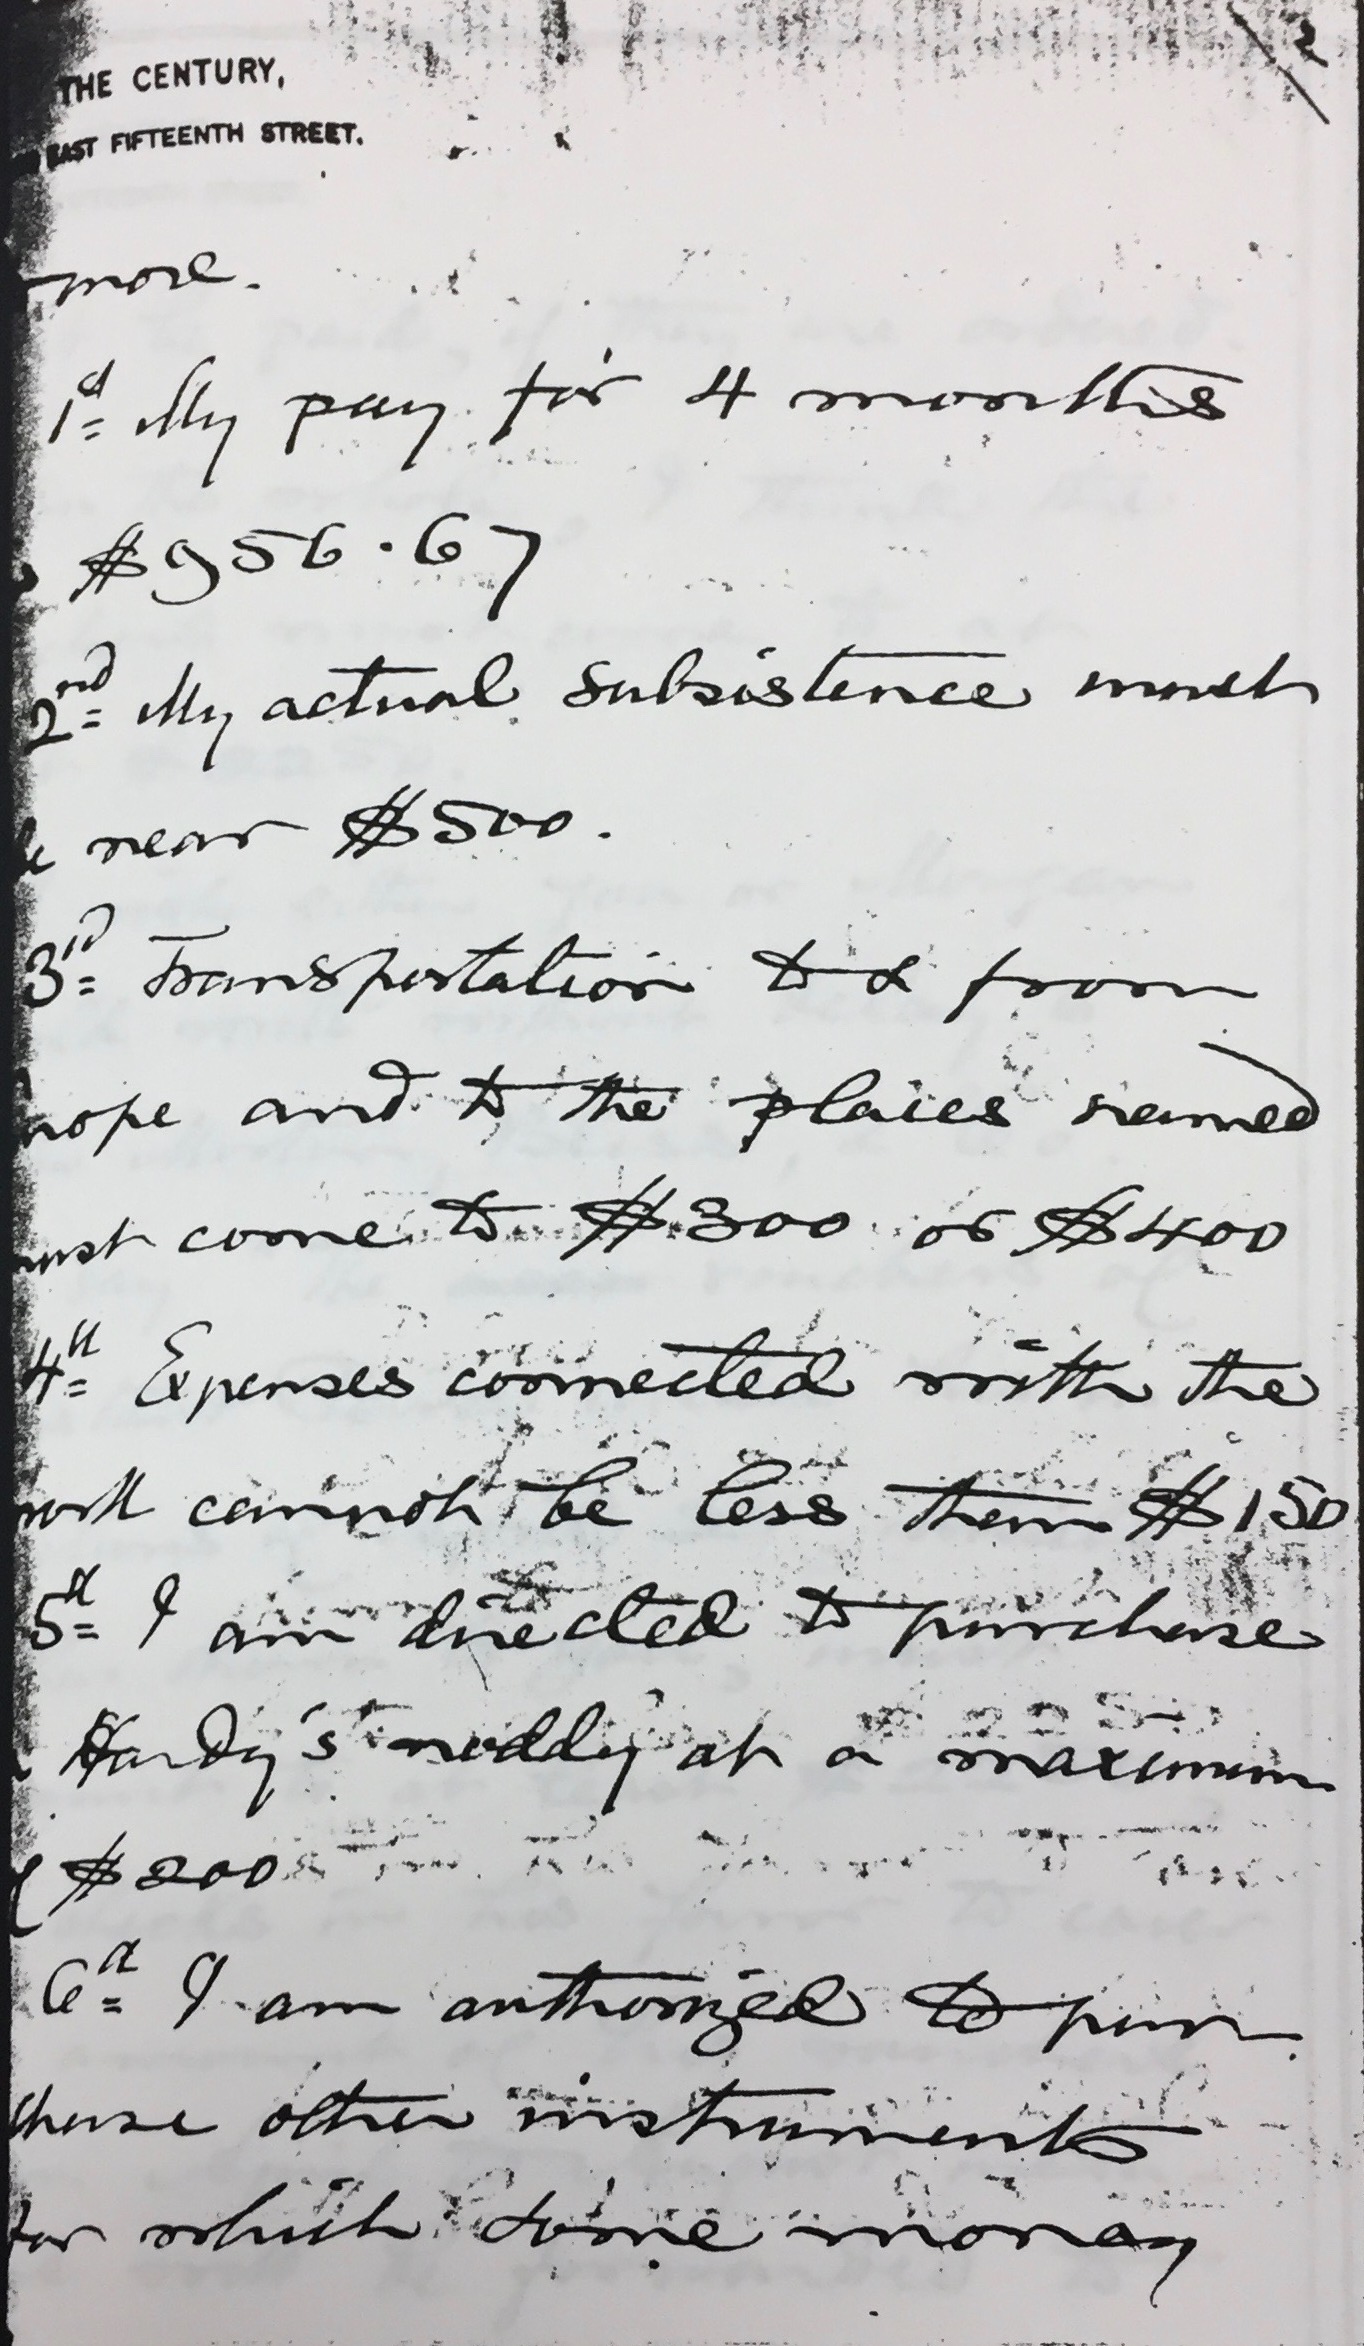 2
THE CENTURY,
EAST FIFTEENTH STREET.
more.
1st My pay for 4 months
$956.67
2nd My actual subsistence must
near $500.
3rd Transportation to & from
rope and to the places named
must come to $300 or $400
4th Expenses connected with the
work cannot be less than $150
5th I am directed to purchase
Hardy's noddy at a maximum
$200
6th I am authorized to pur
chase other instruments
for which some money